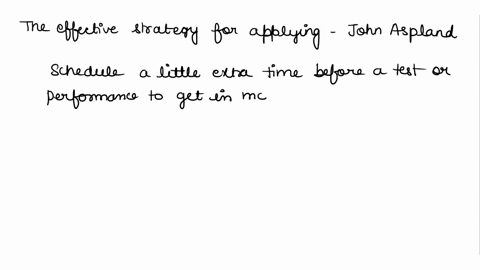 The effective strategy for applying - John Aspland
Schedule a little extra time before a test or
performance to get in mc